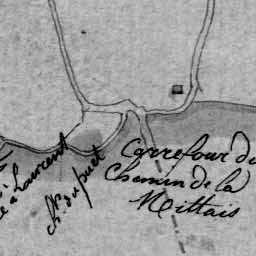 Carrefour du
Chemin de la
Mittais
Laurent
Ch. du puet